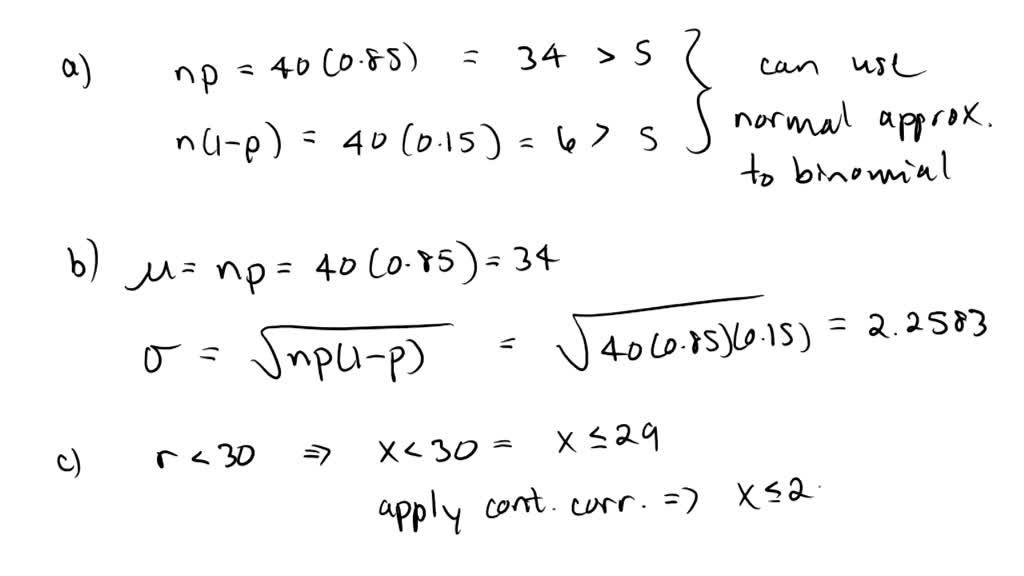 a) np = 40(0.85) = 34 > 5
n(1-p) = 40(0.15) = 6 > 5
can use
normal approx.
to binomial
b) μ = np = 40(0.85) = 34
σ = √np(1-p) = √40(0.85)(0.15) = 2.2583
c) r < 30 ⇒ x < 30 = x ≤ 29
apply cont. corr. ⇒ x ≤ 2